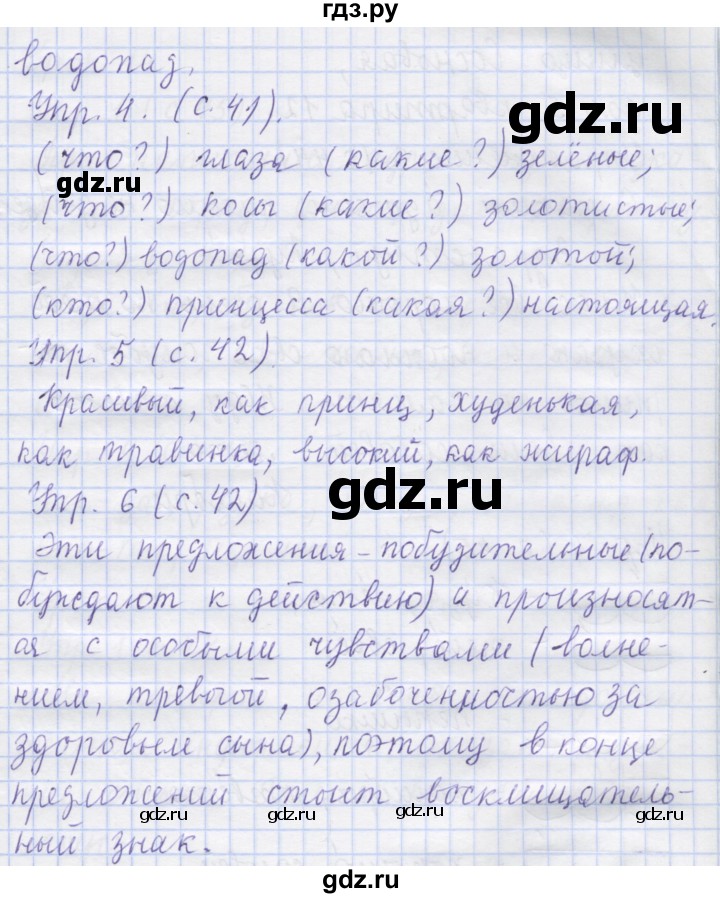 гдз.ру
водопад.
Упр. 4. (с. 41).
gdz.ru
(что?) глаза (какие?) зелёные;
gdz.ru
(что?) косы (какие?) золотистые;
(что?) водопад (какой?) золотой;
(кто?) принцесса (какая?) настоящая.
Упр. 5 (с. 42).
Красивый, как принц, худенькая,
как травинка, высокий, как жираф.
Упр. 6 (с. 42)
gdz.ru
Эти предложения – побудительные (по-
буждают к действию) и произносят-
ся с особыми чувствами (волне-
нием, тревогой, озабоченностью за
здоровьем сына), поэтому в конце
предложений стоит восклицатель-
ный знак.
gdz.ru gdz.ru gdz.ru
gdz.ru